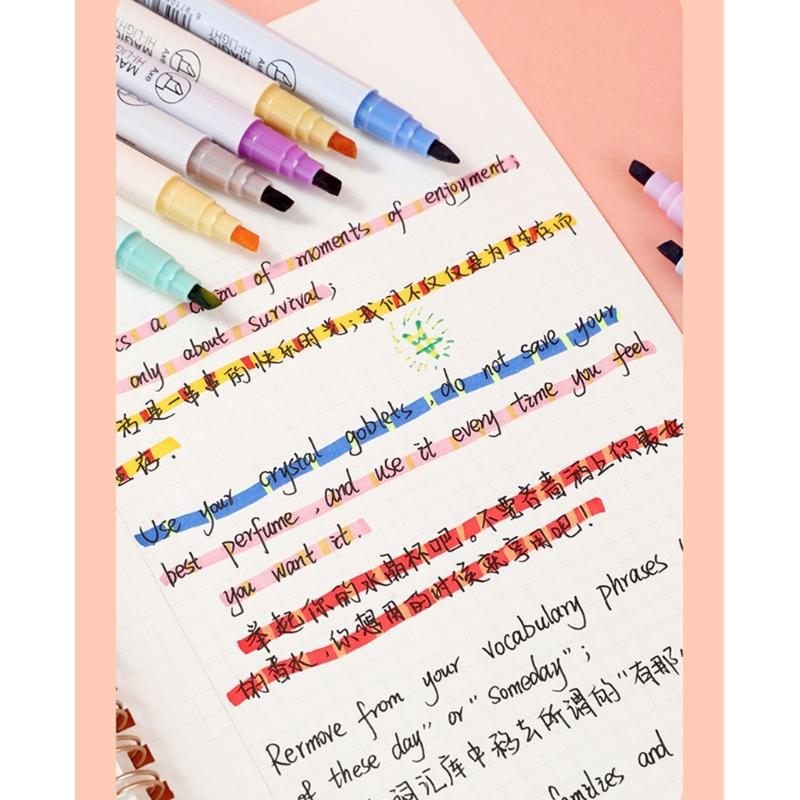 MAGIC
HI-LIGHT
MAGIC
HI-LIGHT
Axe
is a chain of moments of enjoyment;
only about survival;
我们不仅仅是为了生活而
活是一串串的快乐时光;
生存.
Use your crystal goblets, do not save your
best perfume, and use it every time you feel
you want it.
举起你的水晶杯吧。不要吝啬洒上你最好
的香水,你想用的时候就享用吧!
Rermove from your vocabulary phrases
of these day" or "someday";
词汇库中移去所谓的"有那
families and